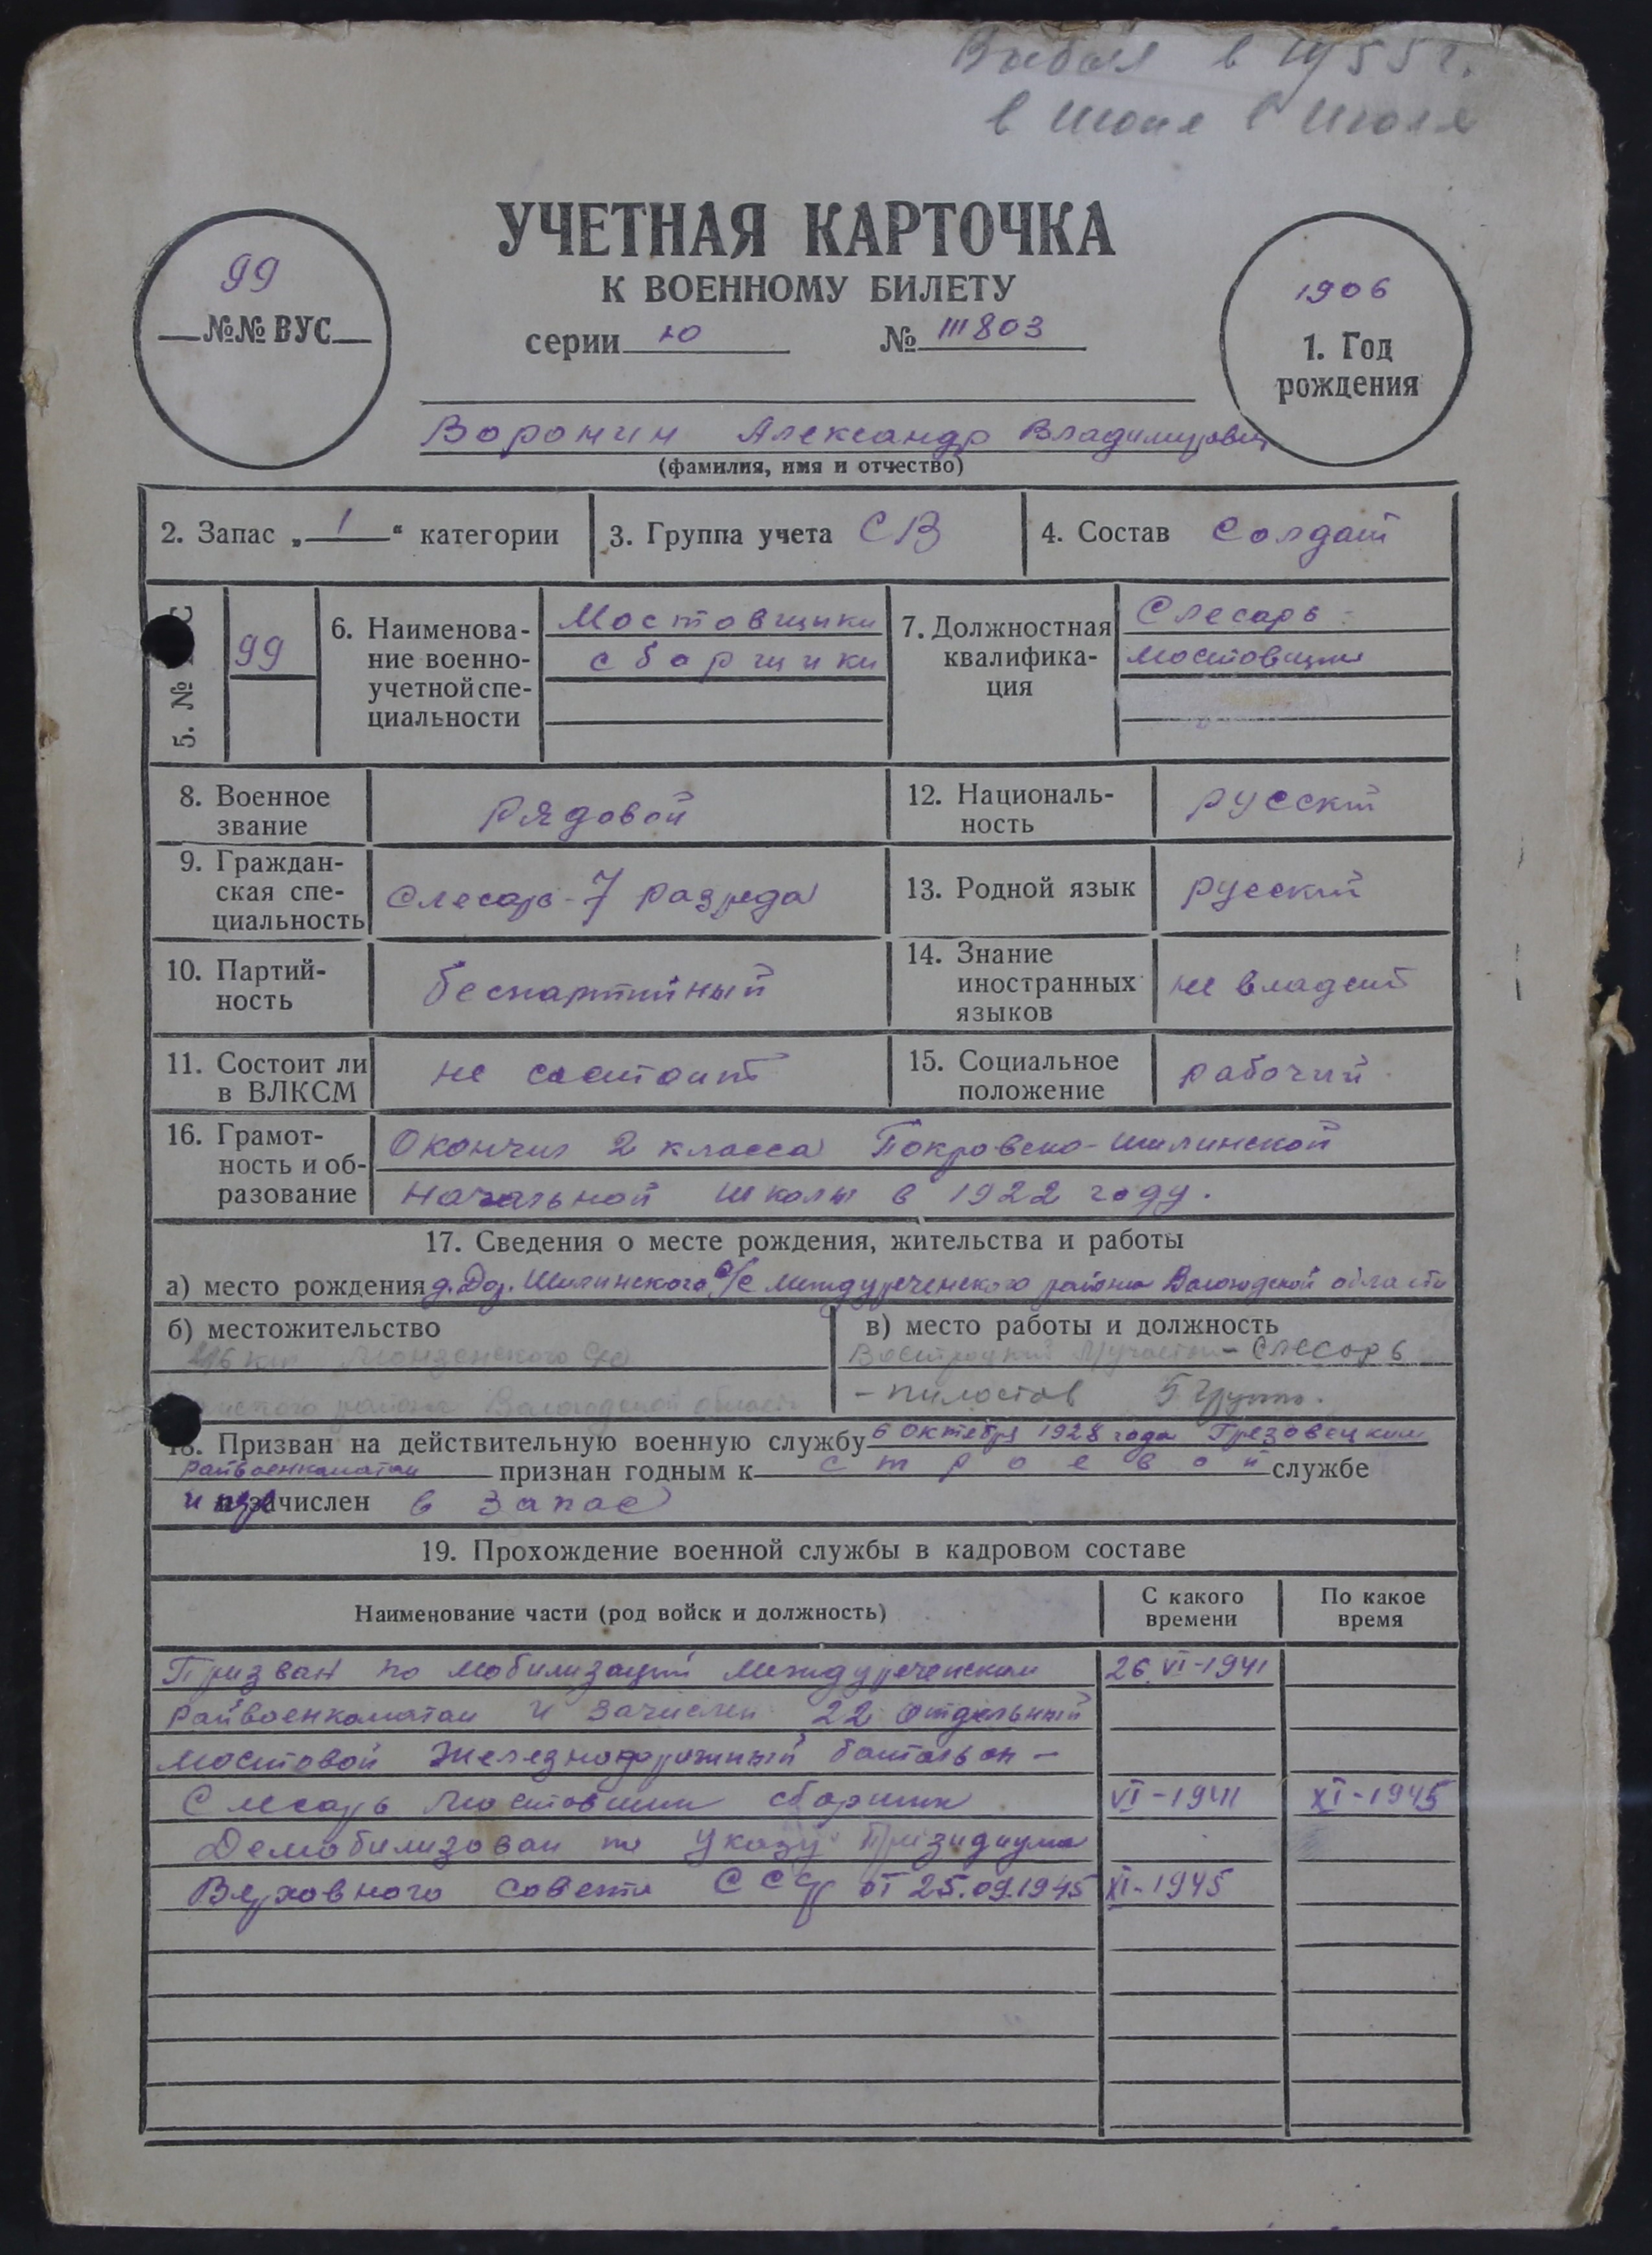 в 1955 г.
в июне
УЧЕТНАЯ КАРТОЧКА
К ВОЕННОМУ БИЛЕТУ
99
№№ ВУС
серии Ю № 111803
1906
1. Год
рождения
Воронин Александр Владимирович
(фамилия, имя и отчество)
2. Запас „ 1 “ категории
3. Группа учета СВ
4. Состав Солдат
5. №
99
6. Наименова-
ние военно-
учетной спе-
циальности
Мостовщики
сборщики
7. Должностная
квалифика-
ция
Слесарь-
мостовщик
8. Военное
звание
Рядовой
12. Националь-
ность
русский
9. Граждан-
ская спе-
циальность
Слесарь-7 разряда
13. Родной язык
русский
10. Партий-
ность
беспартийный
14. Знание
иностранных
языков
не владеет
11. Состоит ли
в ВЛКСМ
не состоит
15. Социальное
положение
рабочий
16. Грамот-
ность и об-
разование
Окончил 2 класса Покровско-Шилинской
Начальной школы в 1922 году.
17. Сведения о месте рождения, жительства и работы
а) место рождения д. Дор. Шилинского с/с Междуреченского района Вологодской области
б) местожительство
Монзенского
района Вологодской области
в) место работы и должность
- слесарь
- пилостав 5 группы.
18. Призван на действительную военную службу 6 октября 1928 года Грязовецким
Райвоенкоматом признан годным к строевой службе
и зачислен в запас
19. Прохождение военной службы в кадровом составе
Наименование части (род войск и должность)
С какого
времени
По какое
время
Призван по мобилизации Междуреченским 26 VI-1941
Райвоенкоматом и зачислен 22 отдельный
мостовой Железнодорожный батальон -
Слесарь мостовщик сборщик VI-1941 XI-1945
Демобилизован по Указу Президиума
Верховного Совета СССР от 25.09.1945 XI-1945